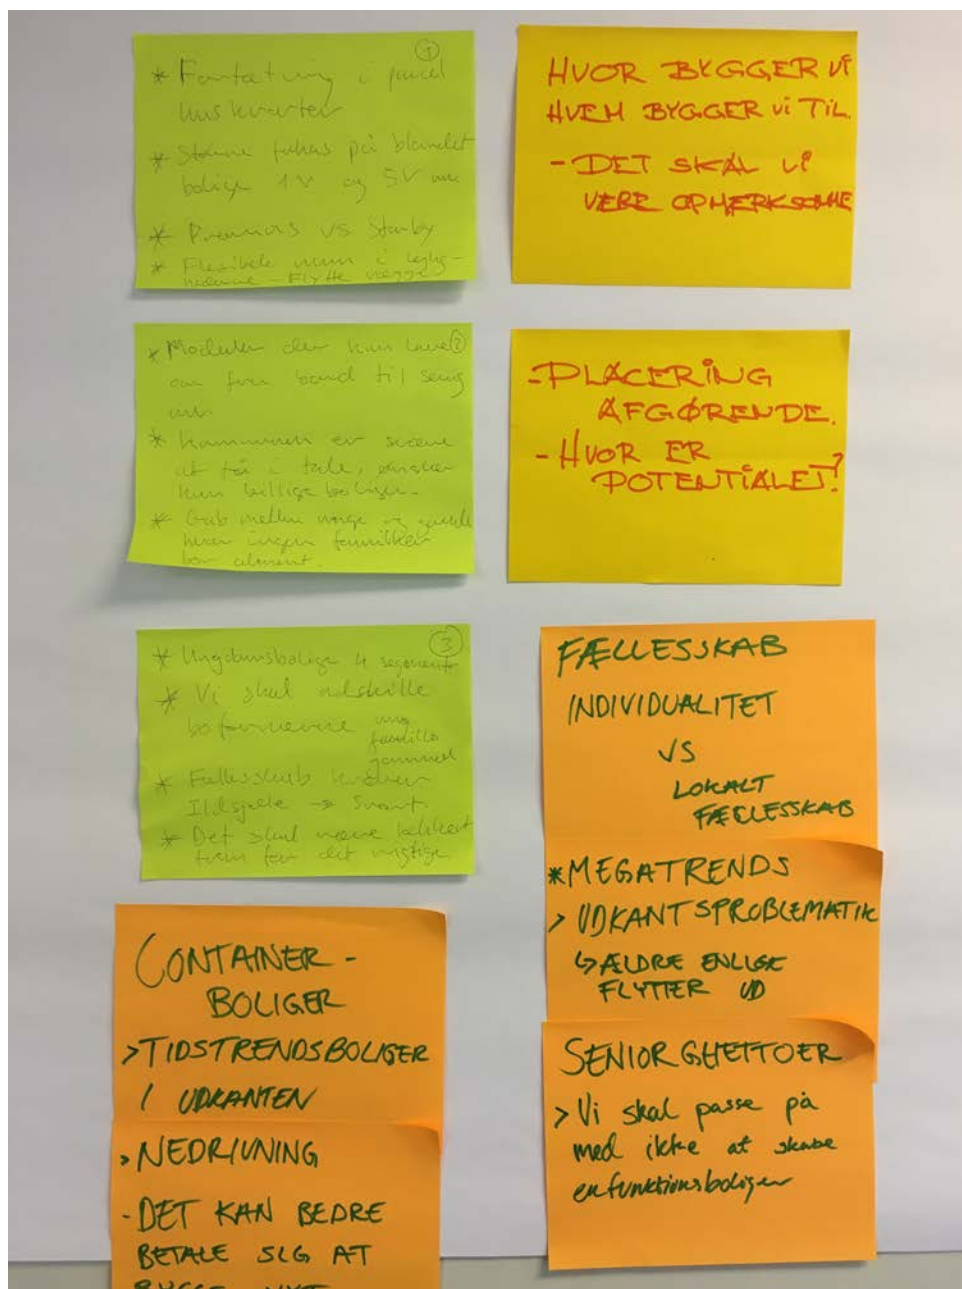 ①
* Fortætning i parcel
huskvarter
* Større fokus på blandet
bolig 1V og 5V
* vs
* Flexible rum i lejlig-
hederne - Flytte vægge
②
* Moduler der kun
om fra bord til seng
* Kommunen er svære
at få i tale, ønsker
kun billige boliger.
* Gab mellem unge og gamle
hvor ingen familier
bor alment.
③
* Ungdomsbolige 4 segmenter
* Vi skal adskille
boformerne ung
familie
gammel
* Fællesskab kræver
Ildsjæle → Svært
* Det skal være lækkert
frem for det rigtige
HVOR BYGGER Vi
HVEM BYGGER Vi TiL.
- DET SKAL Vi
VERE OPMERKSOMME
- PLACERiNG
AFGØRENDE.
- HVOR ER
POTENTiALET?
FÆLLESSKAB
INDIVIDUALITET
VS
LOKALT
FÆLLESSKAB
*MEGATRENDS
> UDKANTSPROBLEMATIK
↳ ÆLDRE ENLIGE
FLYTTER UD
SENIORGHETTOER
> Vi skal passe på
med ikke at skabe
enfunktionsboliger
CONTAINER-
BOLIGER
> TIDSTRENDSBOLIGER
I UDKANTEN
> NEDRIVNING
- DET KAN BEDRE
BETALE SIG AT
BYGGE NYT